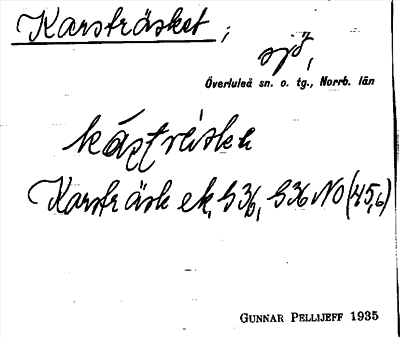 Karsträsket, sjö,
Överluleå sn. o. tg., Norrb. län
Karsträsk ek, S 36, S 36 NO (45,6)
GUNNAR PELLIJEFF 1935